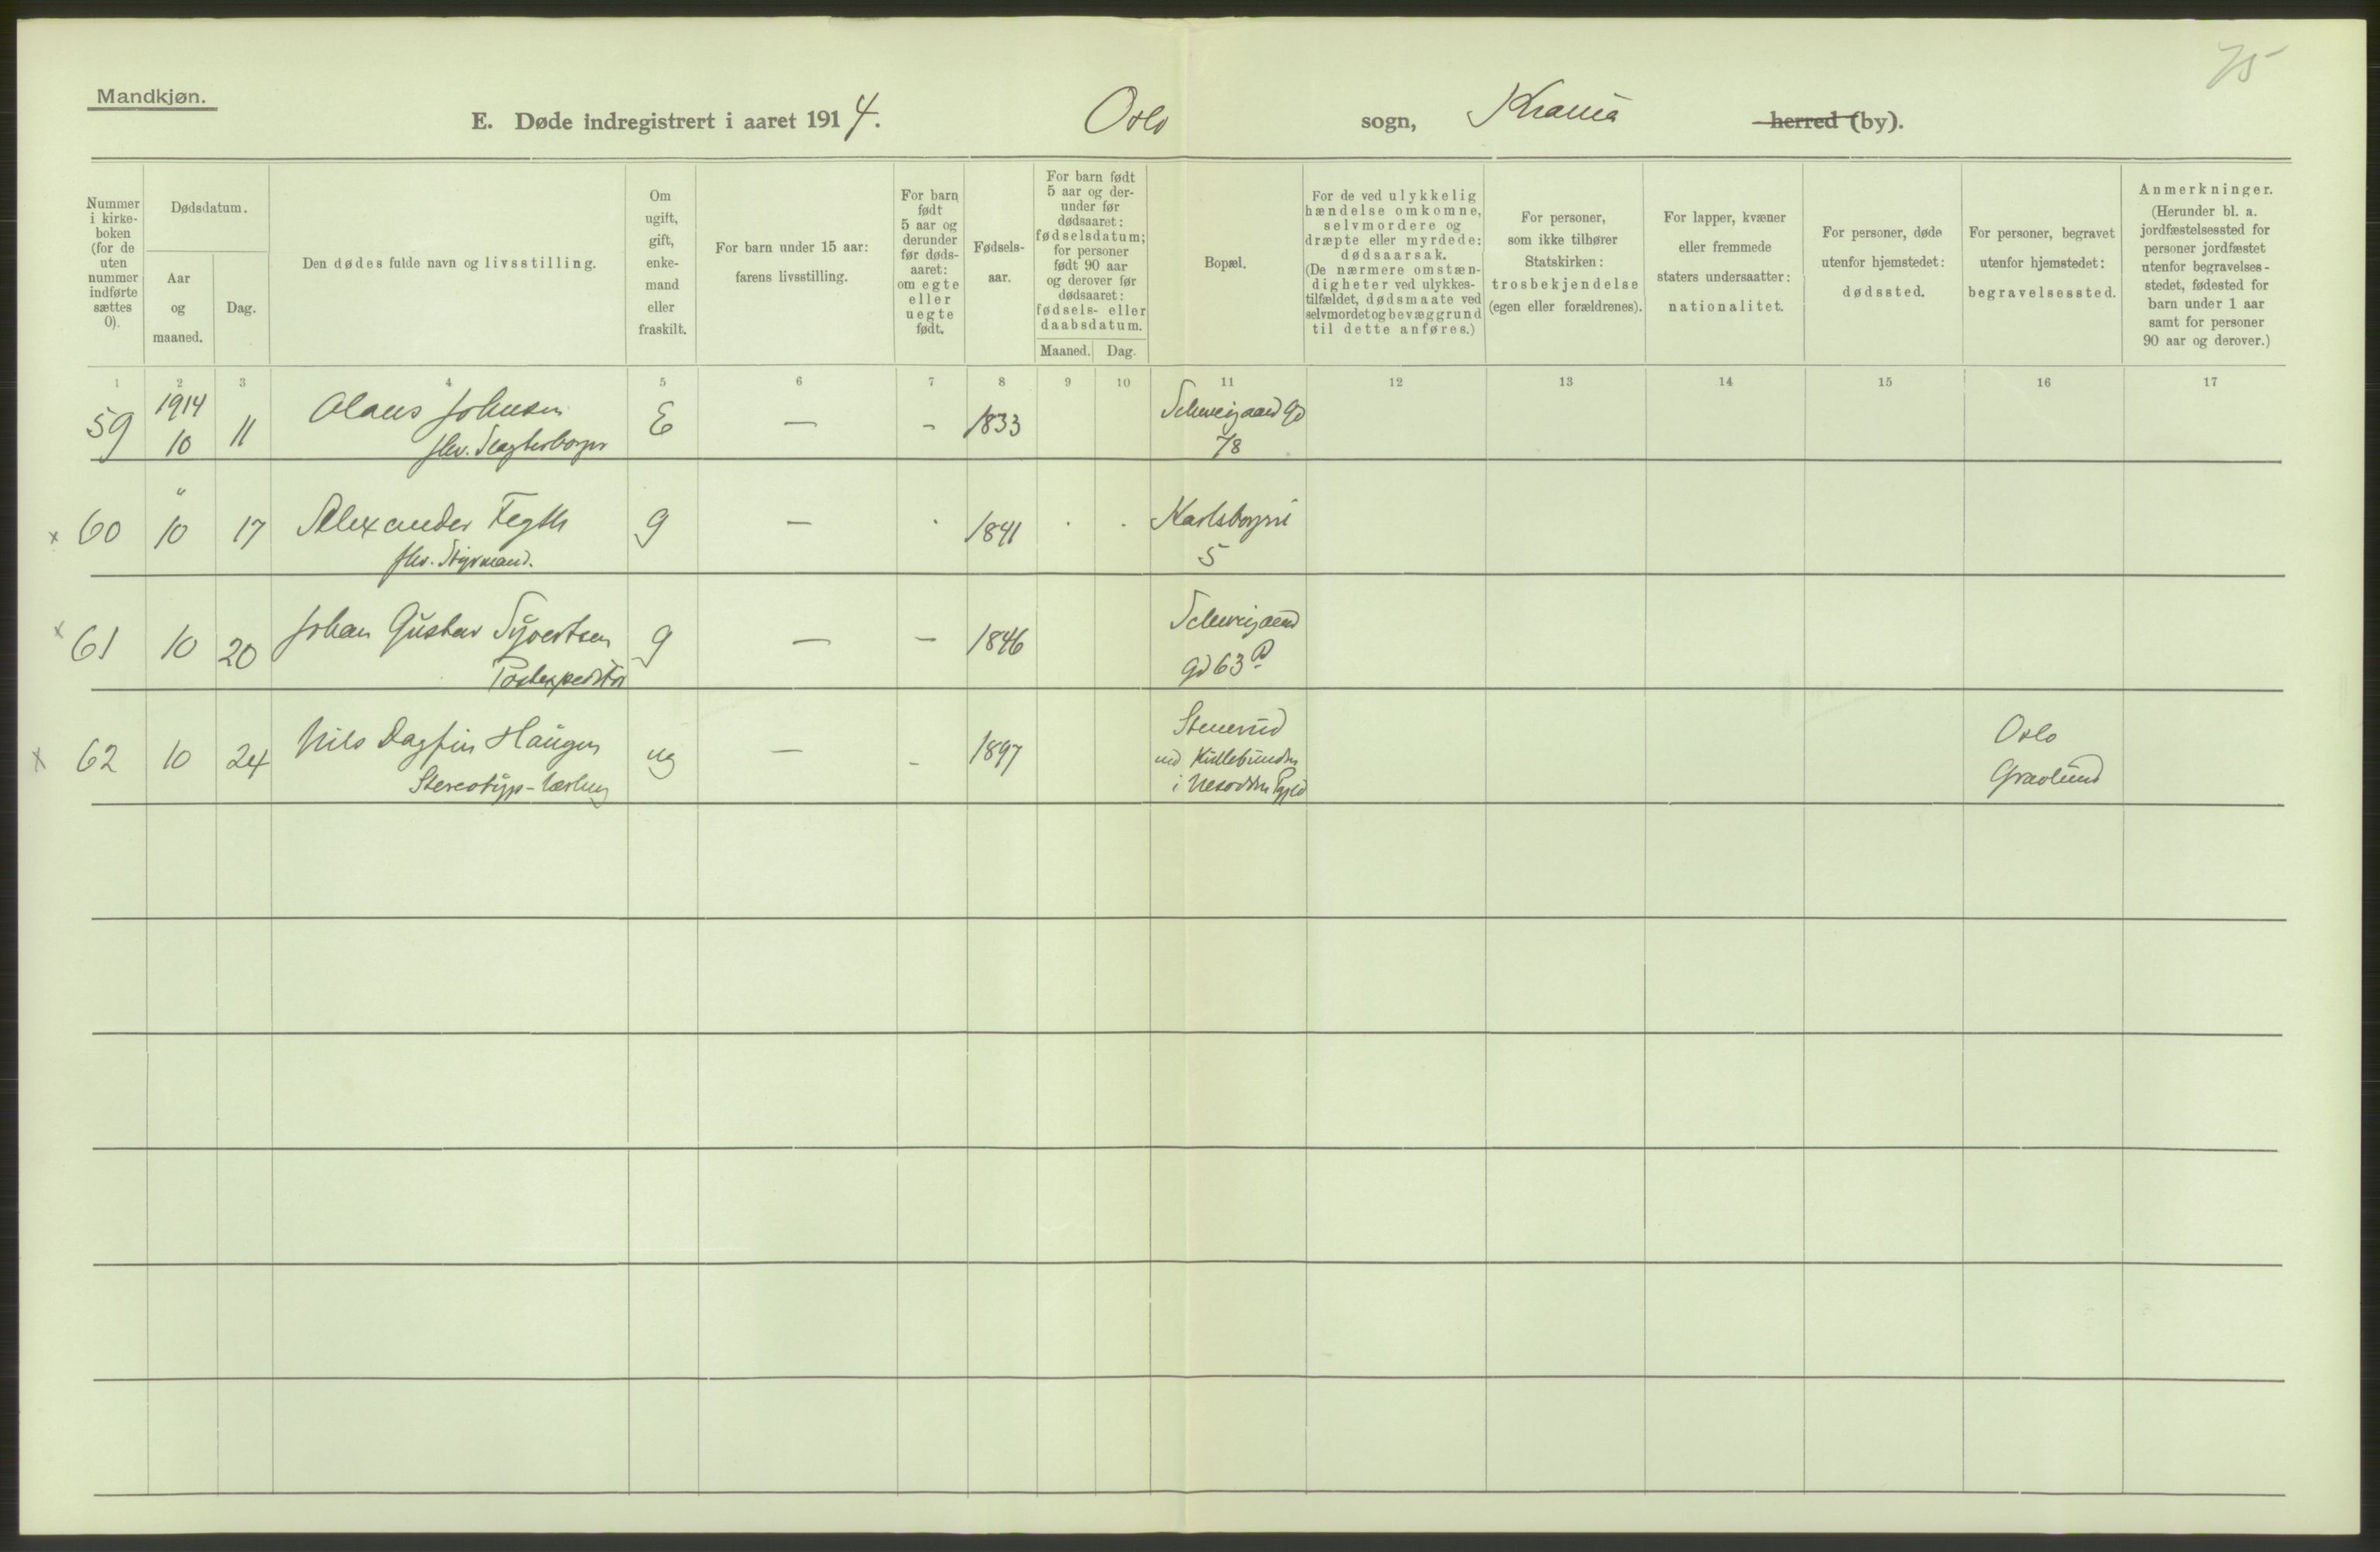 75
Mandkjøn.
E. Døde indregistrert i aaret 1914. Oslo sogn, Krania herred (by).
Nummer i kirke- boken (for de uten nummer indførte sættes 0).
Dødsdatum.
Aar og maaned.
Dag.
Den dødes fulde navn og livsstilling.
Om ugift, gift, enke- mand eller fraskilt.
For barn under 15 aar: farens livsstilling.
For barn født 5 aar og derunder før døds- aaret: om egte eller uegte født.
Fødsels- aar.
For barn født 5 aar og der- under før dødsaaret: fødselsdatum; for personer født 90 aar og derover før dødsaaret: fødsels- eller daabsdatum.
Maaned. Dag.
Bopæl.
For de ved ulykkelig hændelse omkomne, selvmordere og dræpte eller myrdede: dødsaarsak. (De nærmere omstæn- digheter ved ulykkes- tilfældet, dødsmaate ved selvmordet og bevæggrund til dette anføres.)
For personer, som ikke tilhører Statskirken: trosbekjendelse (egen eller forældrenes).
For lapper, kvæner eller fremmede staters undersaatter: nationalitet.
For personer, døde utenfor hjemstedet: dødssted.
For personer, begravet utenfor hjemstedet: begravelsessted.
Anmerkninger. (Herunder bl. a. jordfæstelsessted for personer jordfæstet utenfor begravelses- stedet, fødested for barn under 1 aar samt for personer 90 aar og derover.)
1 2 3 4 5 6 7 8 9 10 11 12 13 14 15 16 17
59 1914 10 11 Olaus Johnsen E — - 1833 Schweigaard Gd
fhv. Slagterborger 78
x 60 " 10 17 Alexander Fegth g — . 1841 . . Karlsborgvei
fhv. Styrmand. 5
x 61 10 20 Johan Gustav Syvertsen g — — 1846 Schweigaard
Postexpeditør gd 63
x 62 10 24 Nils Dagfin Haugen ug — - 1897 Stenerud Oslo
Stereotyp-Lærling i Nesodden Pgjld Gravlund